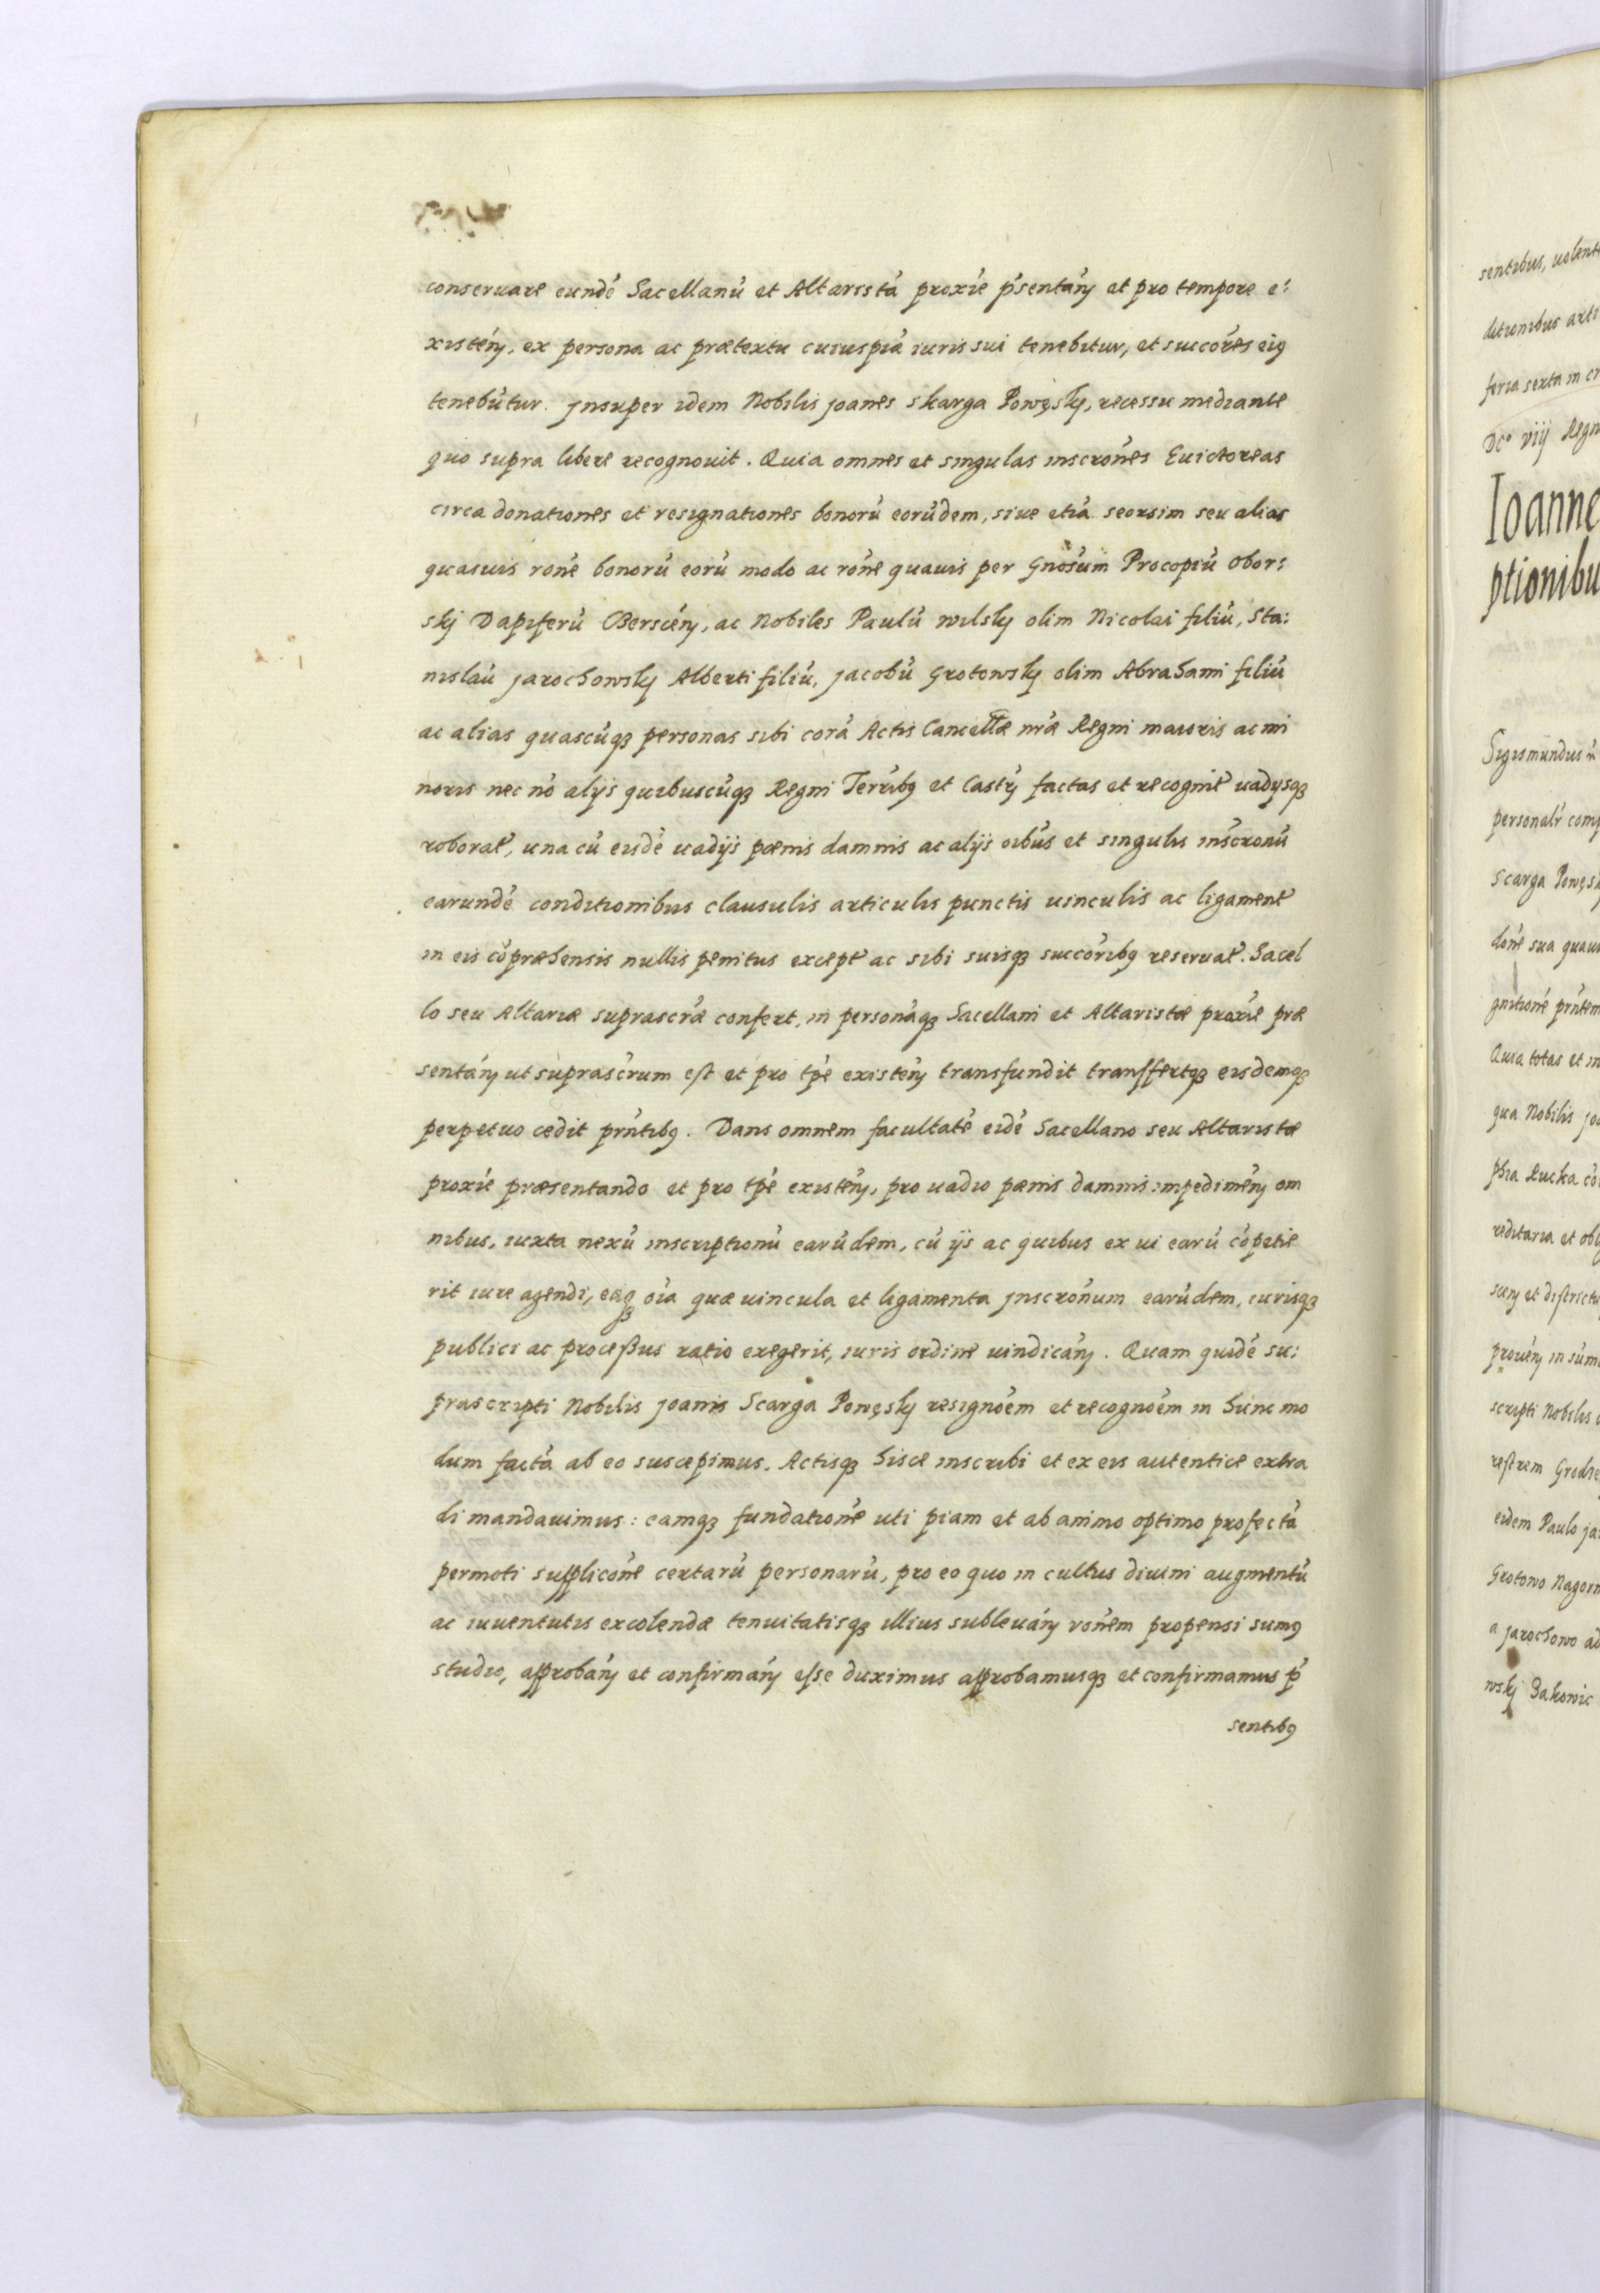 conseruare eundé Sacellanú et Altaristá proxié p̃sentań et pro tempore e:
xisteń, ex persona ac prætextu cuiuspiá iuris sui tenebitur, et succoŕes eiꝰ
tenebútur. Jnsuper idem Nobilis Joanes Skarga Powęskj, recessu mediante
quo supra libere recognouit. Quia omnes et singulas inscrońes Euictoreas
circa donationes et resignationes bonorú eorúdem, siue etiá seorsim seu alias
quasuis rońe bonorú eorú modo ac rońe quauis per Gnośum Procopiú Obor:
skj Dapiferú Bersceń, ac Nobiles Paulú Wilskj olim Nicolai filiú, Sta:
nislaú Jarochowskj Alberti filiú, Jacobú Grotowskj olim Abrahami filiú
ac alias quascúqꝫ personas sibi corá Actis Cancellæ nræ Regni maioris ac mi
noris nec nó alijs quibuscúqꝫ Regni Terríbꝰ et Castń factas et recognit̃ uadijsqꝫ
roborat̃, una cú eisdé uadijs pænis damnis ac alijs oibús et singulis inscronú
earundé conditionibus clausulis articulis punctis uinculis ac ligament̃
in eis cópræhensis nullis penitus except̃ ac sibi suisqꝫ succoŕibꝰ reseruat̃. Sacel
lo seu Altariæ suprascŕæ confert, in personáqꝫ Sacellani et Altaristæ proxié præ
sentań ut supraścrum est et pro tṕe existeń transfundit transffertqꝫ eisdemqꝫ
perpetuo cedit prńtibꝰ. Dans omnem facultaté eidé Sacellano seu Altaristæ
proxié præsentando et pro tṕe existeń, pro uadio pænis damnis impedimeń om
nibus, iuxta nexú inscriptionú earúdem, cú ijs ac quibus ex ui earú cópetie
rit iure agendi, eaqꝫ oía quæ uincula et ligamenta Jnscrońum earúdem, iurisqꝫ
publici ac processus ratio exegerit, iuris ordine uindicań. Quam quidé su:
prascripti Nobilis Joanis Scarga Powęskj resignoém et recognoém in hunc mo
dum factá ab eo suscepimus. Actisqꝫ hisce inscribi et ex eis autentice extra
di mandauimus: eamqꝫ fundationé uti piam et ab animo optimo profectá
permoti supplicońe certarú personarú, pro eo quo in cultus diuini augmentú
ac iuuentutis excolendæ tenuitatisqꝫ illius subleuań rońem propensi sumꝰ
studio, approbań et confirmań esse duximus approbamusqꝫ et confirmamus p̃
sentibꝰ
sentibus, uolent
ditionibus arti
feria sexta in cr
Dcº viij Regn
Ioanne
ptionibu
Sigismundus
personalr comp
Scarga Powęs
done sua quaui
gnitioné prńtem
Quia totas et in
qua Nobilis Jo
phia Rucka có
reditaria et obl
sceń et districtu
proueń in súm
scripti Nobilis
restrem Grodze
eidem Paulo Ja
Grotowo Nagorn
a Jarochowo ad
wskj Bakowic